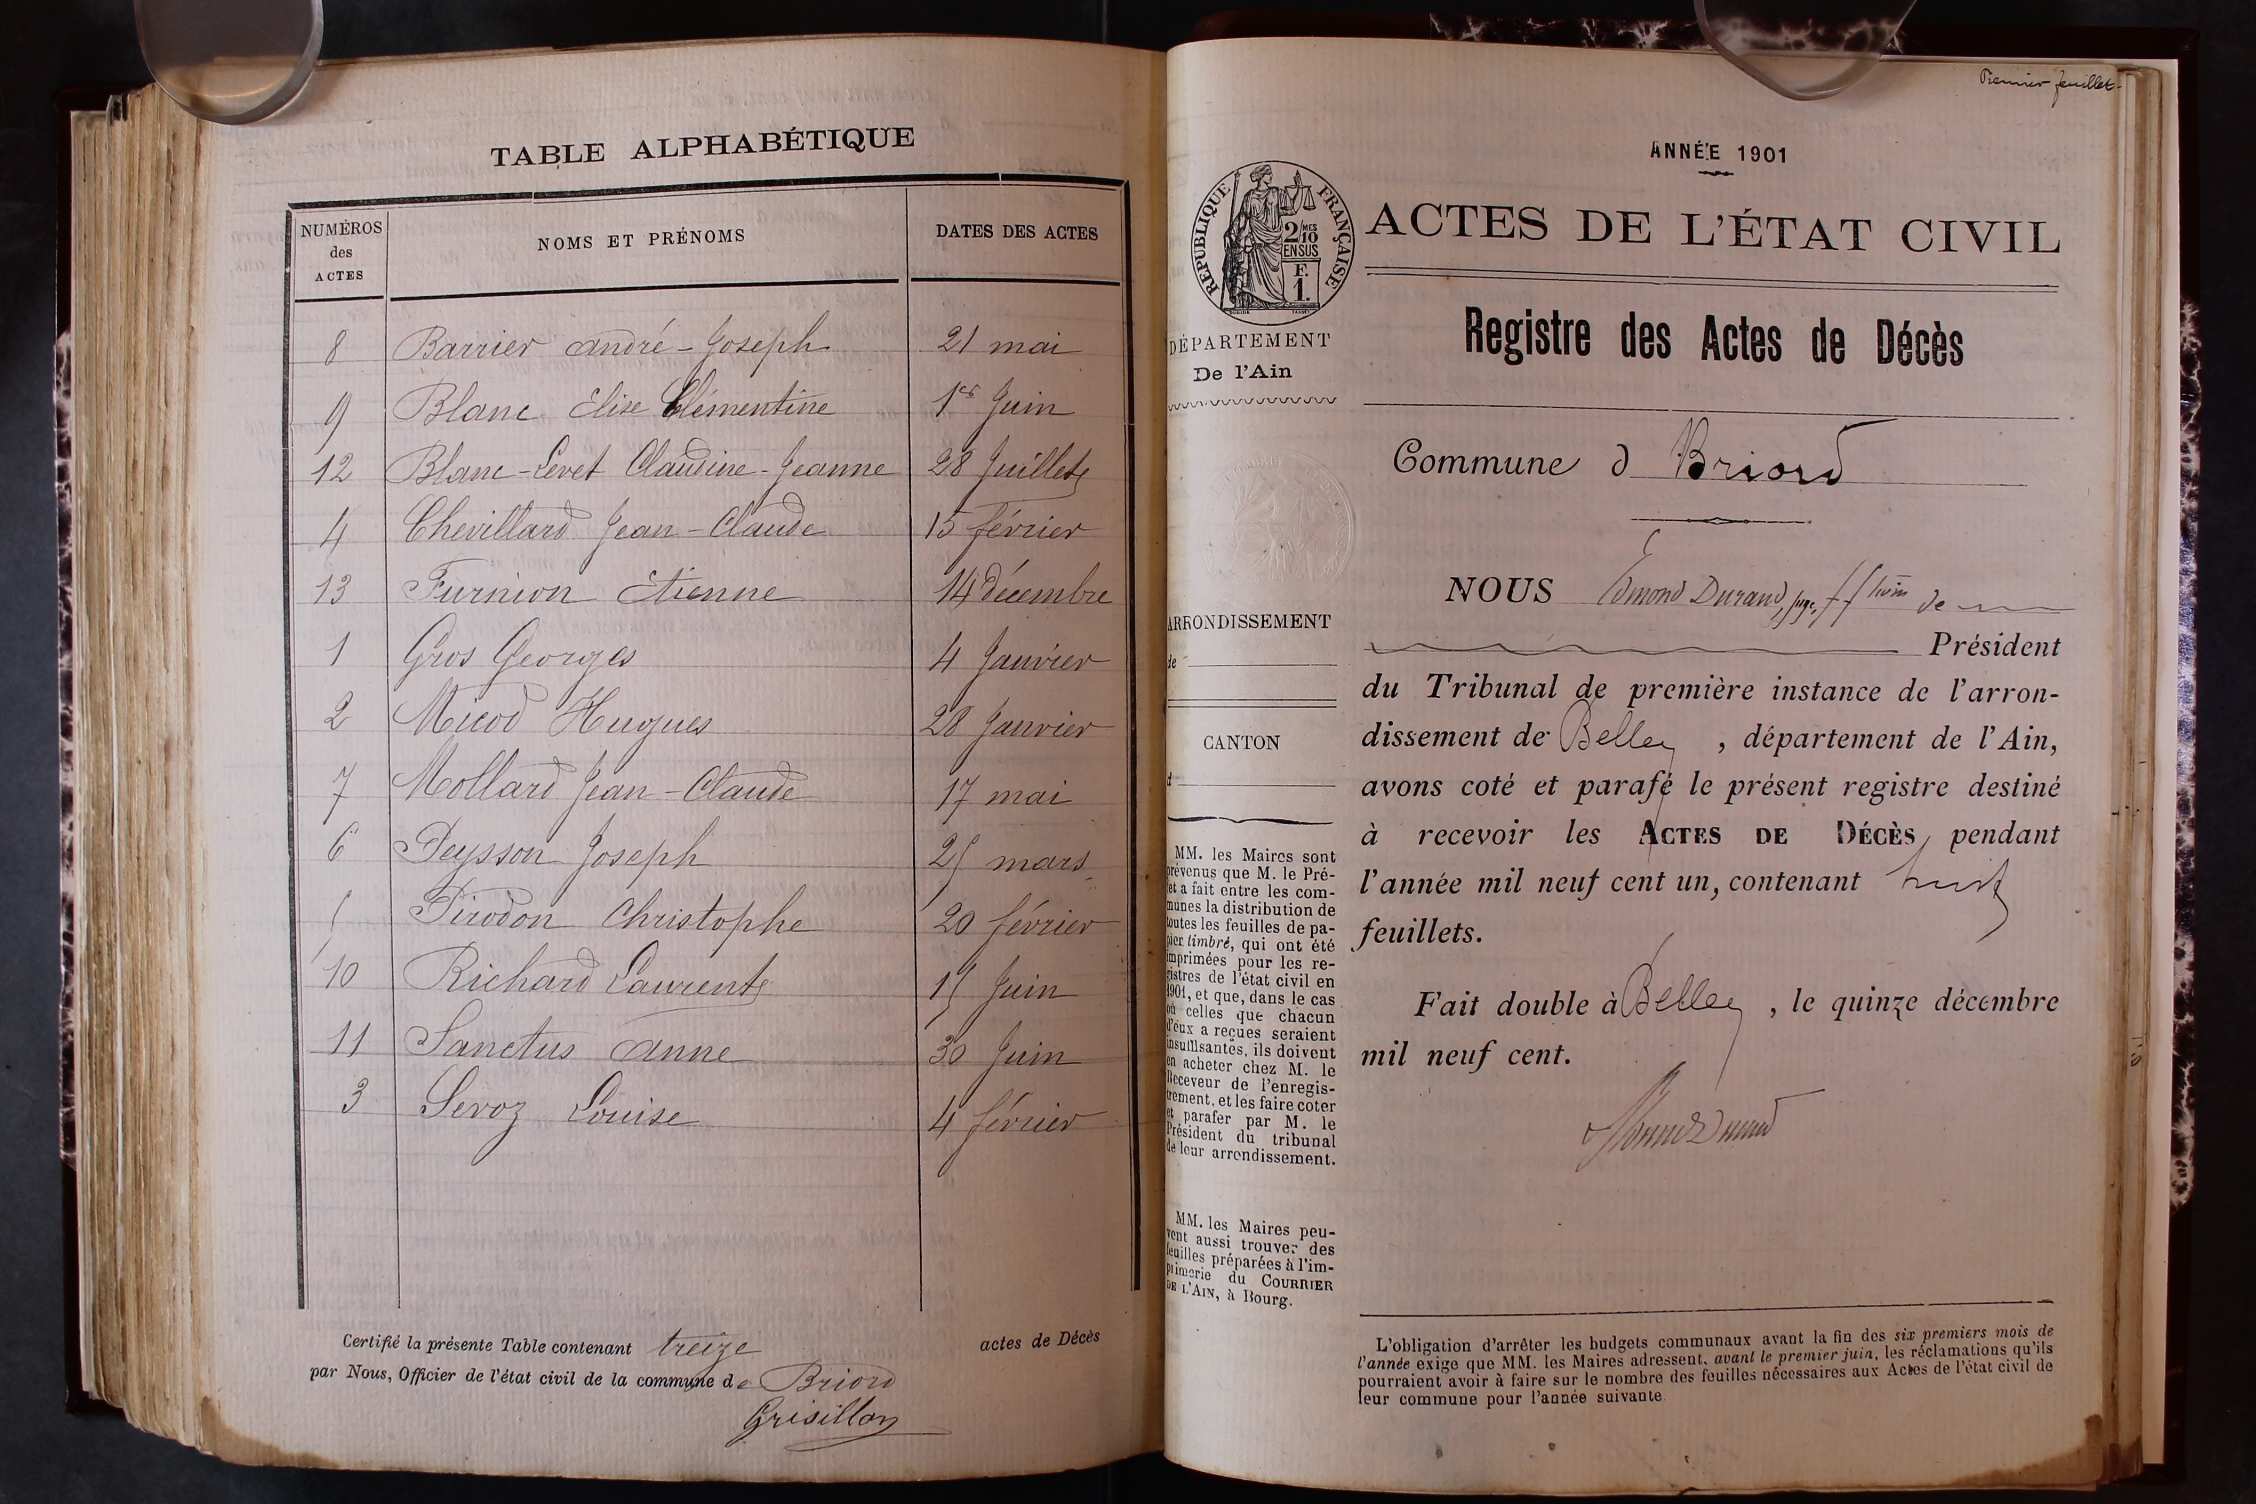 TABLE ALPHABÉTIQUE
NUMÉROS des ACTES
NOMS ET PRÉNOMS
DATES DES ACTES
8 Barrier André-Joseph 21 mai
9 Blanc Elise Clémentine 1er Juin
12 Blanc-Levet Claudine-Jeanne 28 Juillet
4 Chevillard Jean-Claude 15 février
13 Furnion Etienne 14 décembre
1 Gros Georges 4 Janvier
2 Micod Hugues 28 Janvier
7 Mollard Jean-Claude 17 mai
6 Peysson Joseph 25 mars
5 Pirodon Christophe 20 février
10 Richard Laurent 15 Juin
11 Sanctus Anne 30 Juin
3 Servoz Louise 4 février
Certifié la présente Table contenant treize actes de Décès
par Nous, Officier de l'état civil de la commune de Briord
Grisillon
Premier feuillet.
ANNÉE 1901
RÉPUBLIQUE FRANÇAISE
2/10 MES
EN SUS
F.
1.
ACTES DE L'ÉTAT CIVIL
DÉPARTEMENT
De l'Ain
Registre des Actes de Décès
Commune d Briord
ARRONDISSEMENT
de
CANTON
d
NOUS Edmond Durand, juge, ff de
Président
du Tribunal de première instance de l'arron-
dissement de Belley, département de l'Ain,
avons coté et parafé le présent registre destiné
à recevoir les ACTES DE DÉCÈS pendant
l'année mil neuf cent un, contenant huit
feuillets.
Fait double à Belley, le quinze décembre
mil neuf cent.
MM. les Maires sont
prévenus que M. le Pré-
fet a fait entre les com-
munes la distribution de
toutes les feuilles de pa-
pier timbré, qui ont été
imprimées pour les re-
gistres de l'état civil en
1901, et que, dans le cas
où celles que chacun
d'eux a reçues seraient
insuffisantes, ils doivent
en acheter chez M. le
Receveur de l'enregis-
trement, et les faire coter
et parafer par M. le
Président du tribunal
de leur arrondissement.
MM. les Maires peu-
vent aussi trouver des
feuilles préparées à l'im-
primerie du COURRIER
DE L'AIN, à Bourg.
L'obligation d'arrêter les budgets communaux avant la fin des six premiers mois de
l'année exige que MM. les Maires adressent, avant le premier juin, les réclamations qu'ils
pourraient avoir à faire sur le nombre des feuilles nécessaires aux Actes de l'état civil de
leur commune pour l'année suivante.